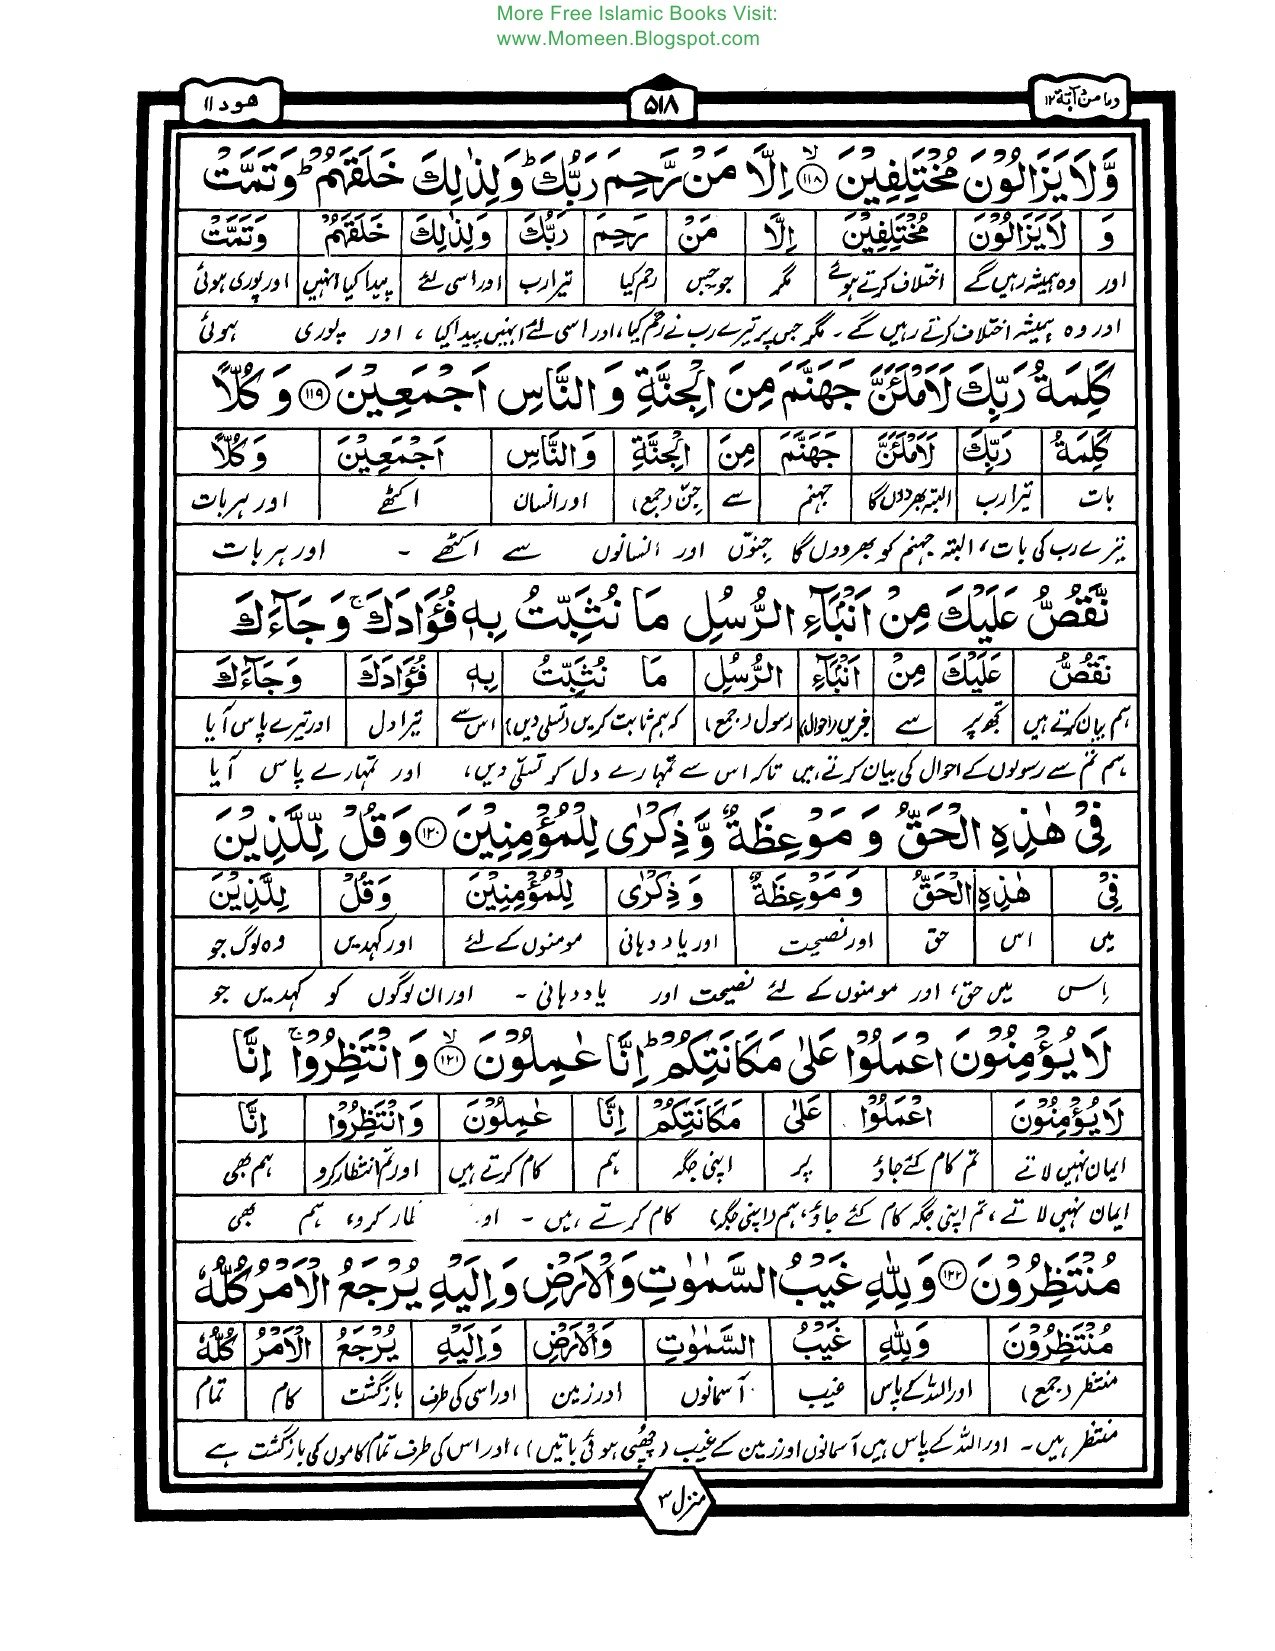 More Free Islamic Books Visit:
www.Momeen.Blogspot.com
وما من دآبة ١٢ ۵۱۸ هود ۱۱
وَّلَا يَزَالُوْنَ مُخْتَلِفِيْنَ ۙ﴿۱۱۸﴾ اِلَّا مَنْ رَّحِمَ رَبُّكَ ؕ وَلِذٰلِكَ خَلَقَهُمْ ؕ وَتَمَّتْ
وَ لَا يَزَالُوْنَ مُخْتَلِفِيْنَ اِلَّا مَنْ رَحِمَ رَبُّكَ وَلِذٰلِكَ خَلَقَهُمْ وَتَمَّتْ
اور وہ ہمیشہ رہیں گے اختلاف کرتے ہوئے مگر جو جس رحم کیا تیرا رب اور اسی لئے پیدا کیا انہیں اور پوری ہوئی
اور وہ ہمیشہ اختلاف کرتے رہیں گے۔ مگر جس پر تیرے رب نے رحم کیا، اور اسی لئے انہیں پیدا کیا ، اور پوری ہوئی
كَلِمَةُ رَبِّكَ لَاَمْلَئَنَّ جَهَنَّمَ مِنَ الْجِنَّةِ وَالنَّاسِ اَجْمَعِيْنَ ﴿۱۱۹﴾ وَكُلًّا
كَلِمَةُ رَبِّكَ لَاَمْلَئَنَّ جَهَنَّمَ مِنَ الْجِنَّةِ وَالنَّاسِ اَجْمَعِيْنَ وَكُلًّا
بات تیرا رب البتہ بھردوں گا جہنم سے جن (جمع) اور انسان اکٹھے اور ہر بات
تیرے رب کی بات، البتہ جہنم کو بھردوں گا جِنّوں اور انسانوں سے اکٹھے ۔ اور ہر بات
نَّقُصُّ عَلَيْكَ مِنْ اَنْۢبَآءِ الرُّسُلِ مَا نُثَبِّتُ بِهٖ فُؤَادَكَ ۚ وَجَآءَكَ
نَقُصُّ عَلَيْكَ مِنْ اَنْۢبَآءِ الرُّسُلِ مَا نُثَبِّتُ بِهٖ فُؤَادَكَ وَجَآءَكَ
ہم بیان کرتے ہیں تجھ پر سے خبریں (احوال) رسول (جمع) کہ ہم ثابت کریں (تسلی دیں) اس سے تیرا دل اور تیرے پاس آیا
ہم تم سے رسولوں کے احوال کی بیان کرتے ہیں تاکہ اس سے تمہارے دل کو تسلّی دیں، اور تمہارے پاس آیا
فِيْ هٰذِهِ الْحَقُّ وَمَوْعِظَةٌ وَّذِكْرٰى لِلْمُؤْمِنِيْنَ ﴿۱۲۰﴾ وَقُلْ لِّلَّذِيْنَ
فِيْ هٰذِهِ الْحَقُّ وَمَوْعِظَةٌ وَذِكْرٰى لِلْمُؤْمِنِيْنَ وَقُلْ لِلَّذِيْنَ
میں اس حق اور نصیحت اور یاد دہانی مومنوں کے لئے اور کہدیں وہ لوگ جو
اِس میں حق، اور مومنوں کے لئے نصیحت اور یاد دہانی ۔ اور ان لوگوں کو کہدیں جو
لَا يُؤْمِنُوْنَ اعْمَلُوْا عَلٰى مَكَانَتِكُمْ ؕ اِنَّا عٰمِلُوْنَ ۙ﴿۱۲۱﴾ وَانْتَظِرُوْا ۚ اِنَّا
لَا يُؤْمِنُوْنَ اعْمَلُوْا عَلٰى مَكَانَتِكُمْ اِنَّا عٰمِلُوْنَ وَانْتَظِرُوْا اِنَّا
ایمان نہیں لاتے تم کام کئے جاؤ پر اپنی جگہ ہم کام کرتے ہیں اور تم انتظار کرو ہم بھی
ایمان نہیں لاتے ، تم اپنی جگہ کام کئے جاؤ، ہم (اپنی جگہ) کام کرتے ہیں ۔ کرو، ہم بھی
مُنْتَظِرُوْنَ ﴿۱۲۲﴾ وَلِلّٰهِ غَيْبُ السَّمٰوٰتِ وَالْاَرْضِ وَاِلَيْهِ يُرْجَعُ الْاَمْرُ كُلُّهٗ
مُنْتَظِرُوْنَ وَلِلّٰهِ غَيْبُ السَّمٰوٰتِ وَالْاَرْضِ وَاِلَيْهِ يُرْجَعُ الْاَمْرُ كُلُّهٗ
منتظر (جمع) اور اللہ کے پاس غیب آسمانوں اور زمین اور اسی کی طرف بازگشت کام تمام
منتظر ہیں۔ اور اللہ کے پاس ہیں آسمانوں اور زمین کے غیب (چھپی ہوئی باتیں)، اور اس کی طرف تمام کاموں کی بازگشت ہے
منزل ۳